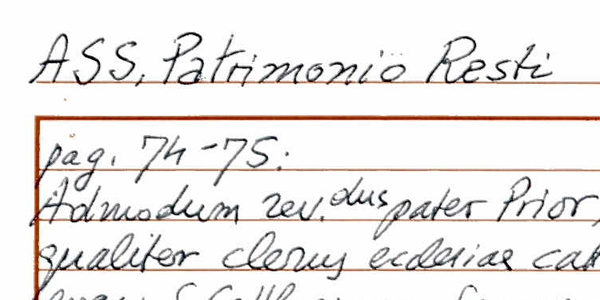 ASS, Patrimonio Resti
pag. 74-75:
Admodum rev.dus pater Prior,
qualiter clerus ecclesiae